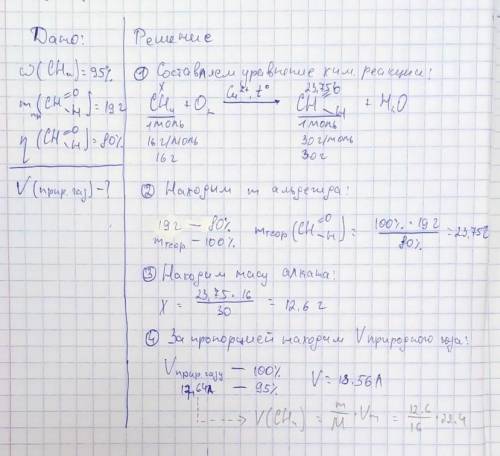 Дано:
ω(CH₄)=95%
m пр (CH=O–H)=19 г
η (CH=O–H)=80%
V(прир. газ) – ?
Решение
① Составляем уравнение хим. реакции:
x 23,75г
CH₄ + O₂ —Cu²⁺, t°→ CH=O–H + H₂O
1 моль 1 моль
16 г/моль 30 г/моль
16 г 30 г
② Находим m альдегида:
19 г — 80%
mтеор — 100%
mтеор (CH=O–H) = 100% · 19 г / 80% = 23,75г
③ Находим масу алкана:
X = 23,75 · 16 / 30 = 12,6 г
④ За пропорцией находим V природного газа:
Vприр. газу — 100%
17,64л — 95%
V = 18.56л
V(CH₄) = m/M · Vm = 12,6/16 · 22,4